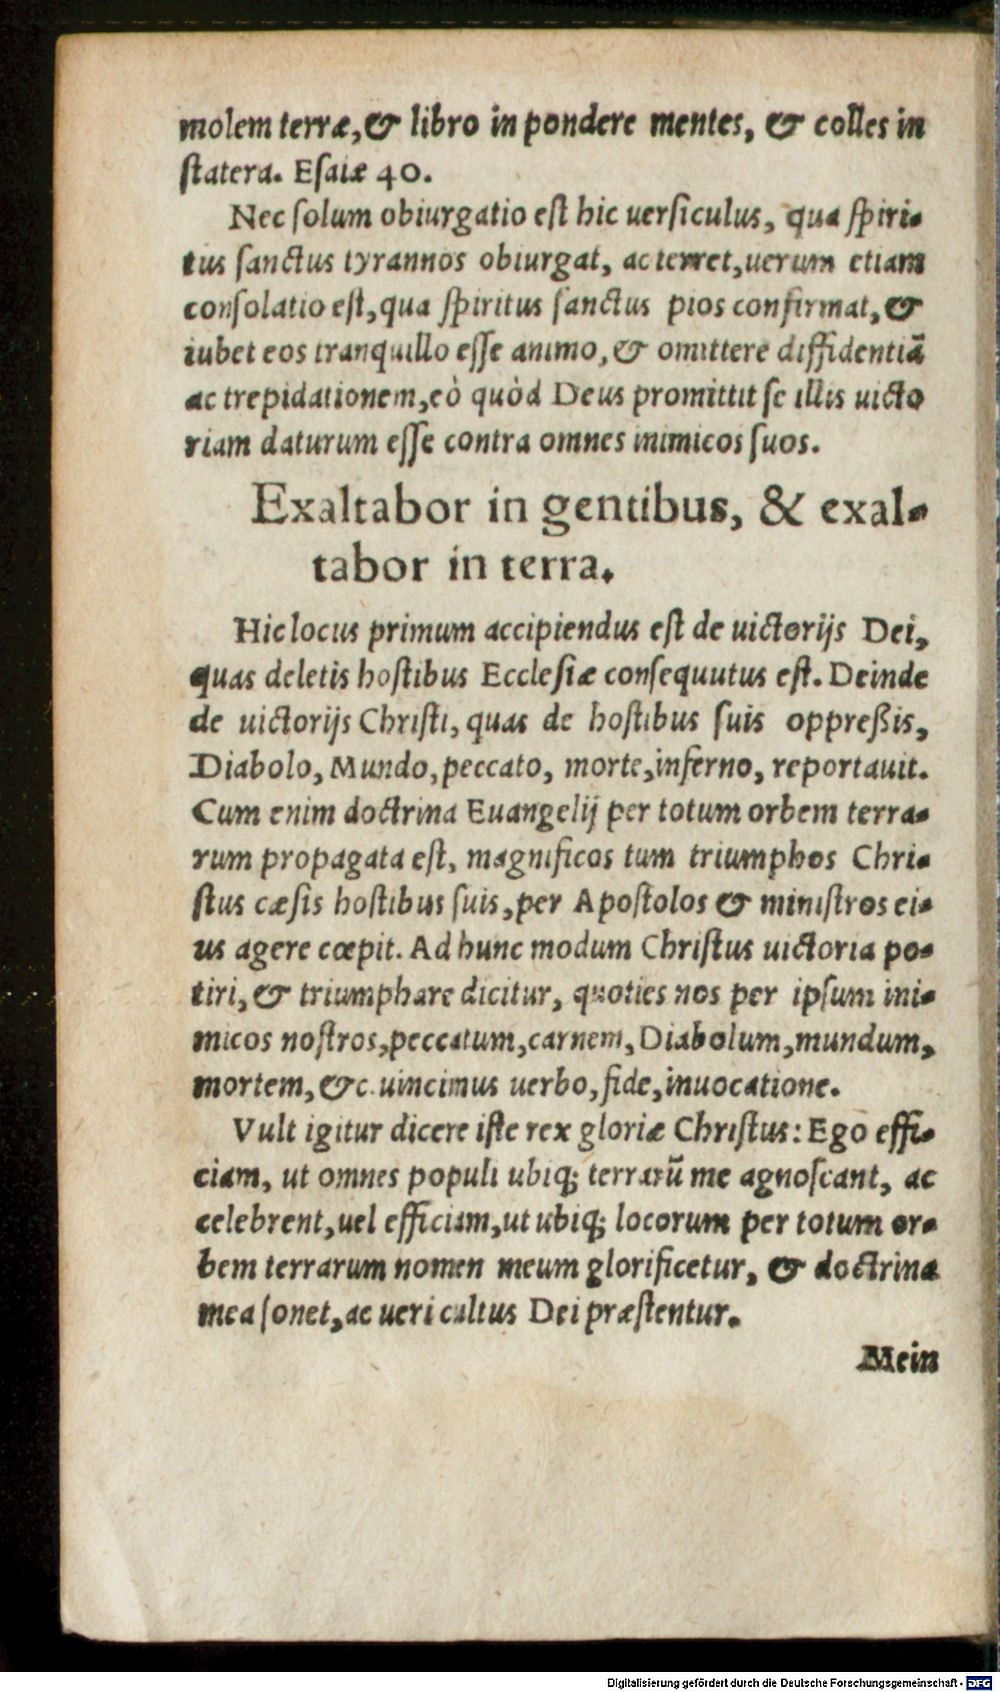 molem terræ, & libro in pondere mentes, & colles in
ſtatera. Eſaiæ 40.
Nec ſolum obiurgatio eſt hic uerſiculus, qua ſpiri-
tus ſanctus tyrannos obiurgat, ac terret, uerum etiam
conſolatio eſt, qua ſpiritus ſanctus pios confirmat, &
iubet eos tranquillo eſſe animo, & omittere diffidentiā
ac trepidationem, eò quòd Deus promittit ſe illis uicto
riam daturum eſſe contra omnes inimicos ſuos.
Exaltabor in gentibus, & exal-
tabor in terra.
Hic locus primum accipiendus eſt de uictorijs Dei,
quas deletis hoſtibus Eccleſiæ conſequutus eſt. Deinde
de uictorijs Chriſti, quas de hoſtibus ſuis oppreßis,
Diabolo, Mundo, peccato, morte, inferno, reportauit.
Cum enim doctrina Euangelij per totum orbem terra-
rum propagata eſt, magnificos tum triumphos Chri-
ſtus cæſis hoſtibus ſuis, per Apoſtolos & miniſtros ei-
us agere cœpit. Ad hunc modum Chriſtus uictoria po-
tiri, & triumphare dicitur, quoties nos per ipſum ini-
micos noſtros, peccatum, carnem, Diabolum, mundum,
mortem, &c. uincimus uerbo, fide, inuocatione.
Vult igitur dicere iſte rex gloriæ Chriſtus: Ego effi-
ciam, ut omnes populi ubiq; terrarū me agnoſcant, ac
celebrent, uel efficiam, ut ubiq; locorum per totum or-
bem terrarum nomen meum glorificetur, & doctrina
mea ſonet, ac ueri cultus Dei præſtentur.
Mein
Digitalisierung gefördert durch die Deutsche Forschungsgemeinschaft - DFG